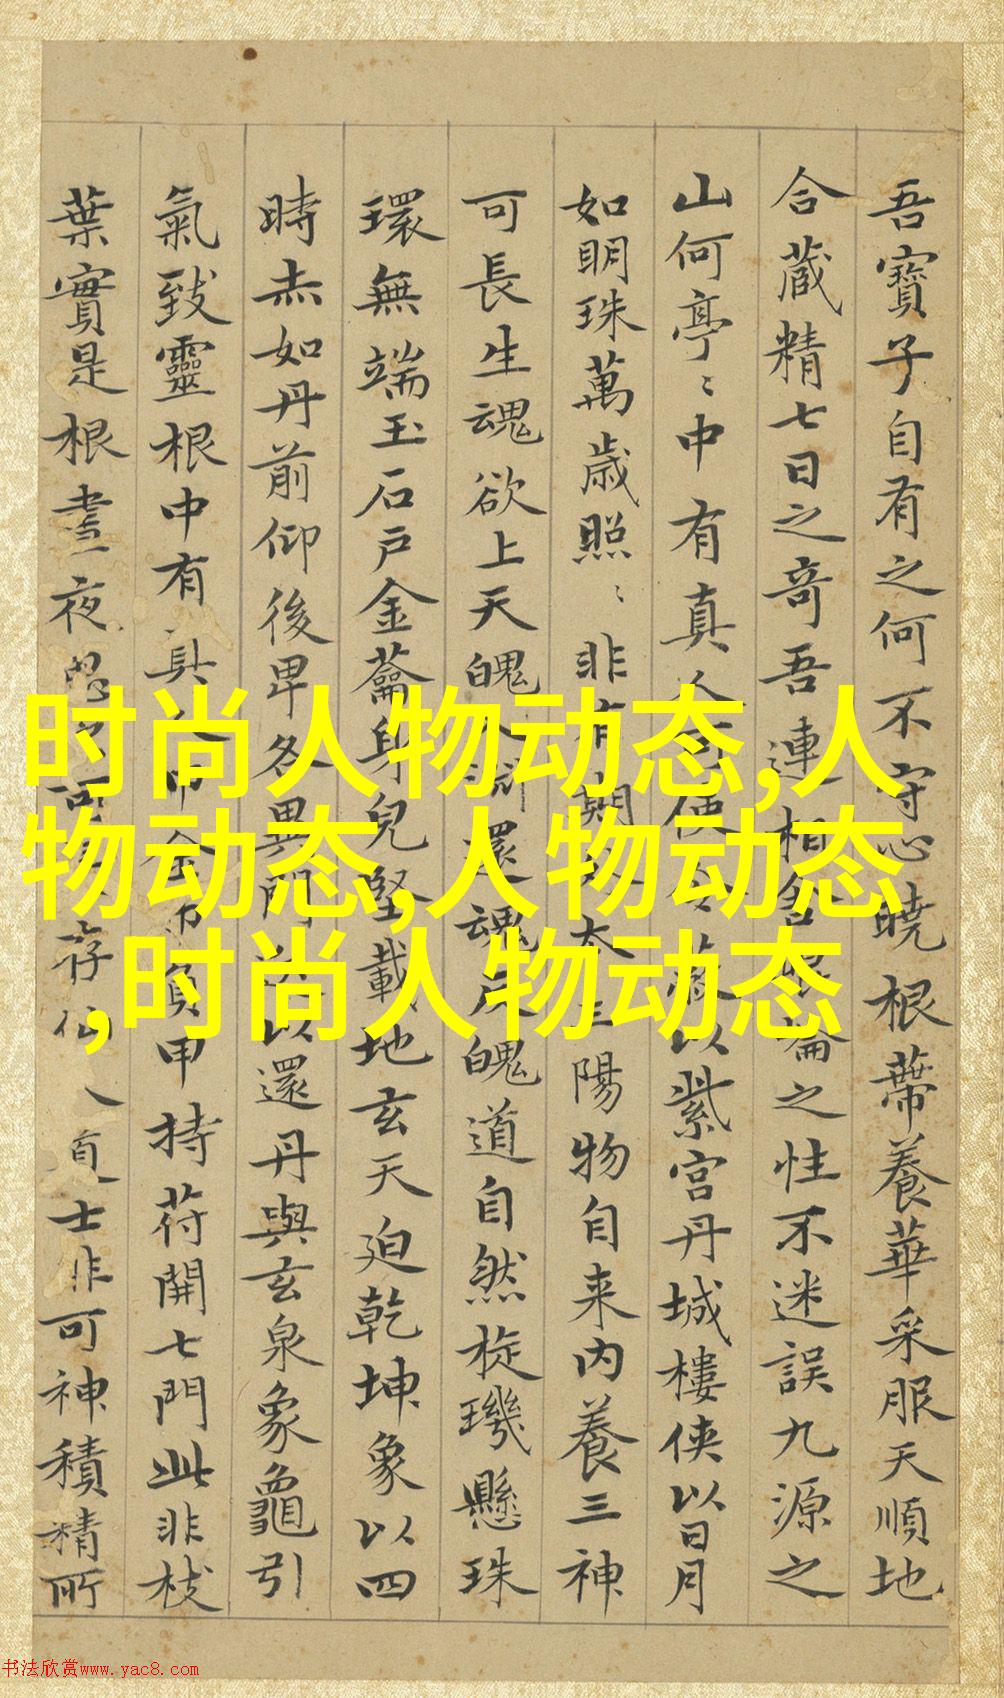 吾寶子自有之何不守心曉根蔕養華采服天順地
合蔵精七日之竒吾連相舍崐崘之性不迷誤九源之
山何亭〻中有真人可使令蔽以紫宫丹城樓俠以日月
如明珠萬歳照〻非有期外本三陽物自来内養三神
可長生魂欲上天魄入淵還魂反魄道自然琁璣懸珠
環無端玉石戸金蘥身兒堅載地玄天迫乾坤象以四
時赤如丹前仰後卑各異門以還丹與玄泉象龜引
氣致靈根中有真人巾金巾負甲持苻開七門此非枝
葉實是根晝夜思之可存仙人道士非可神積精所
时尚人物动态,人
物动态,人物动态
,时尚人物动态
书法欣赏www.yac8.com